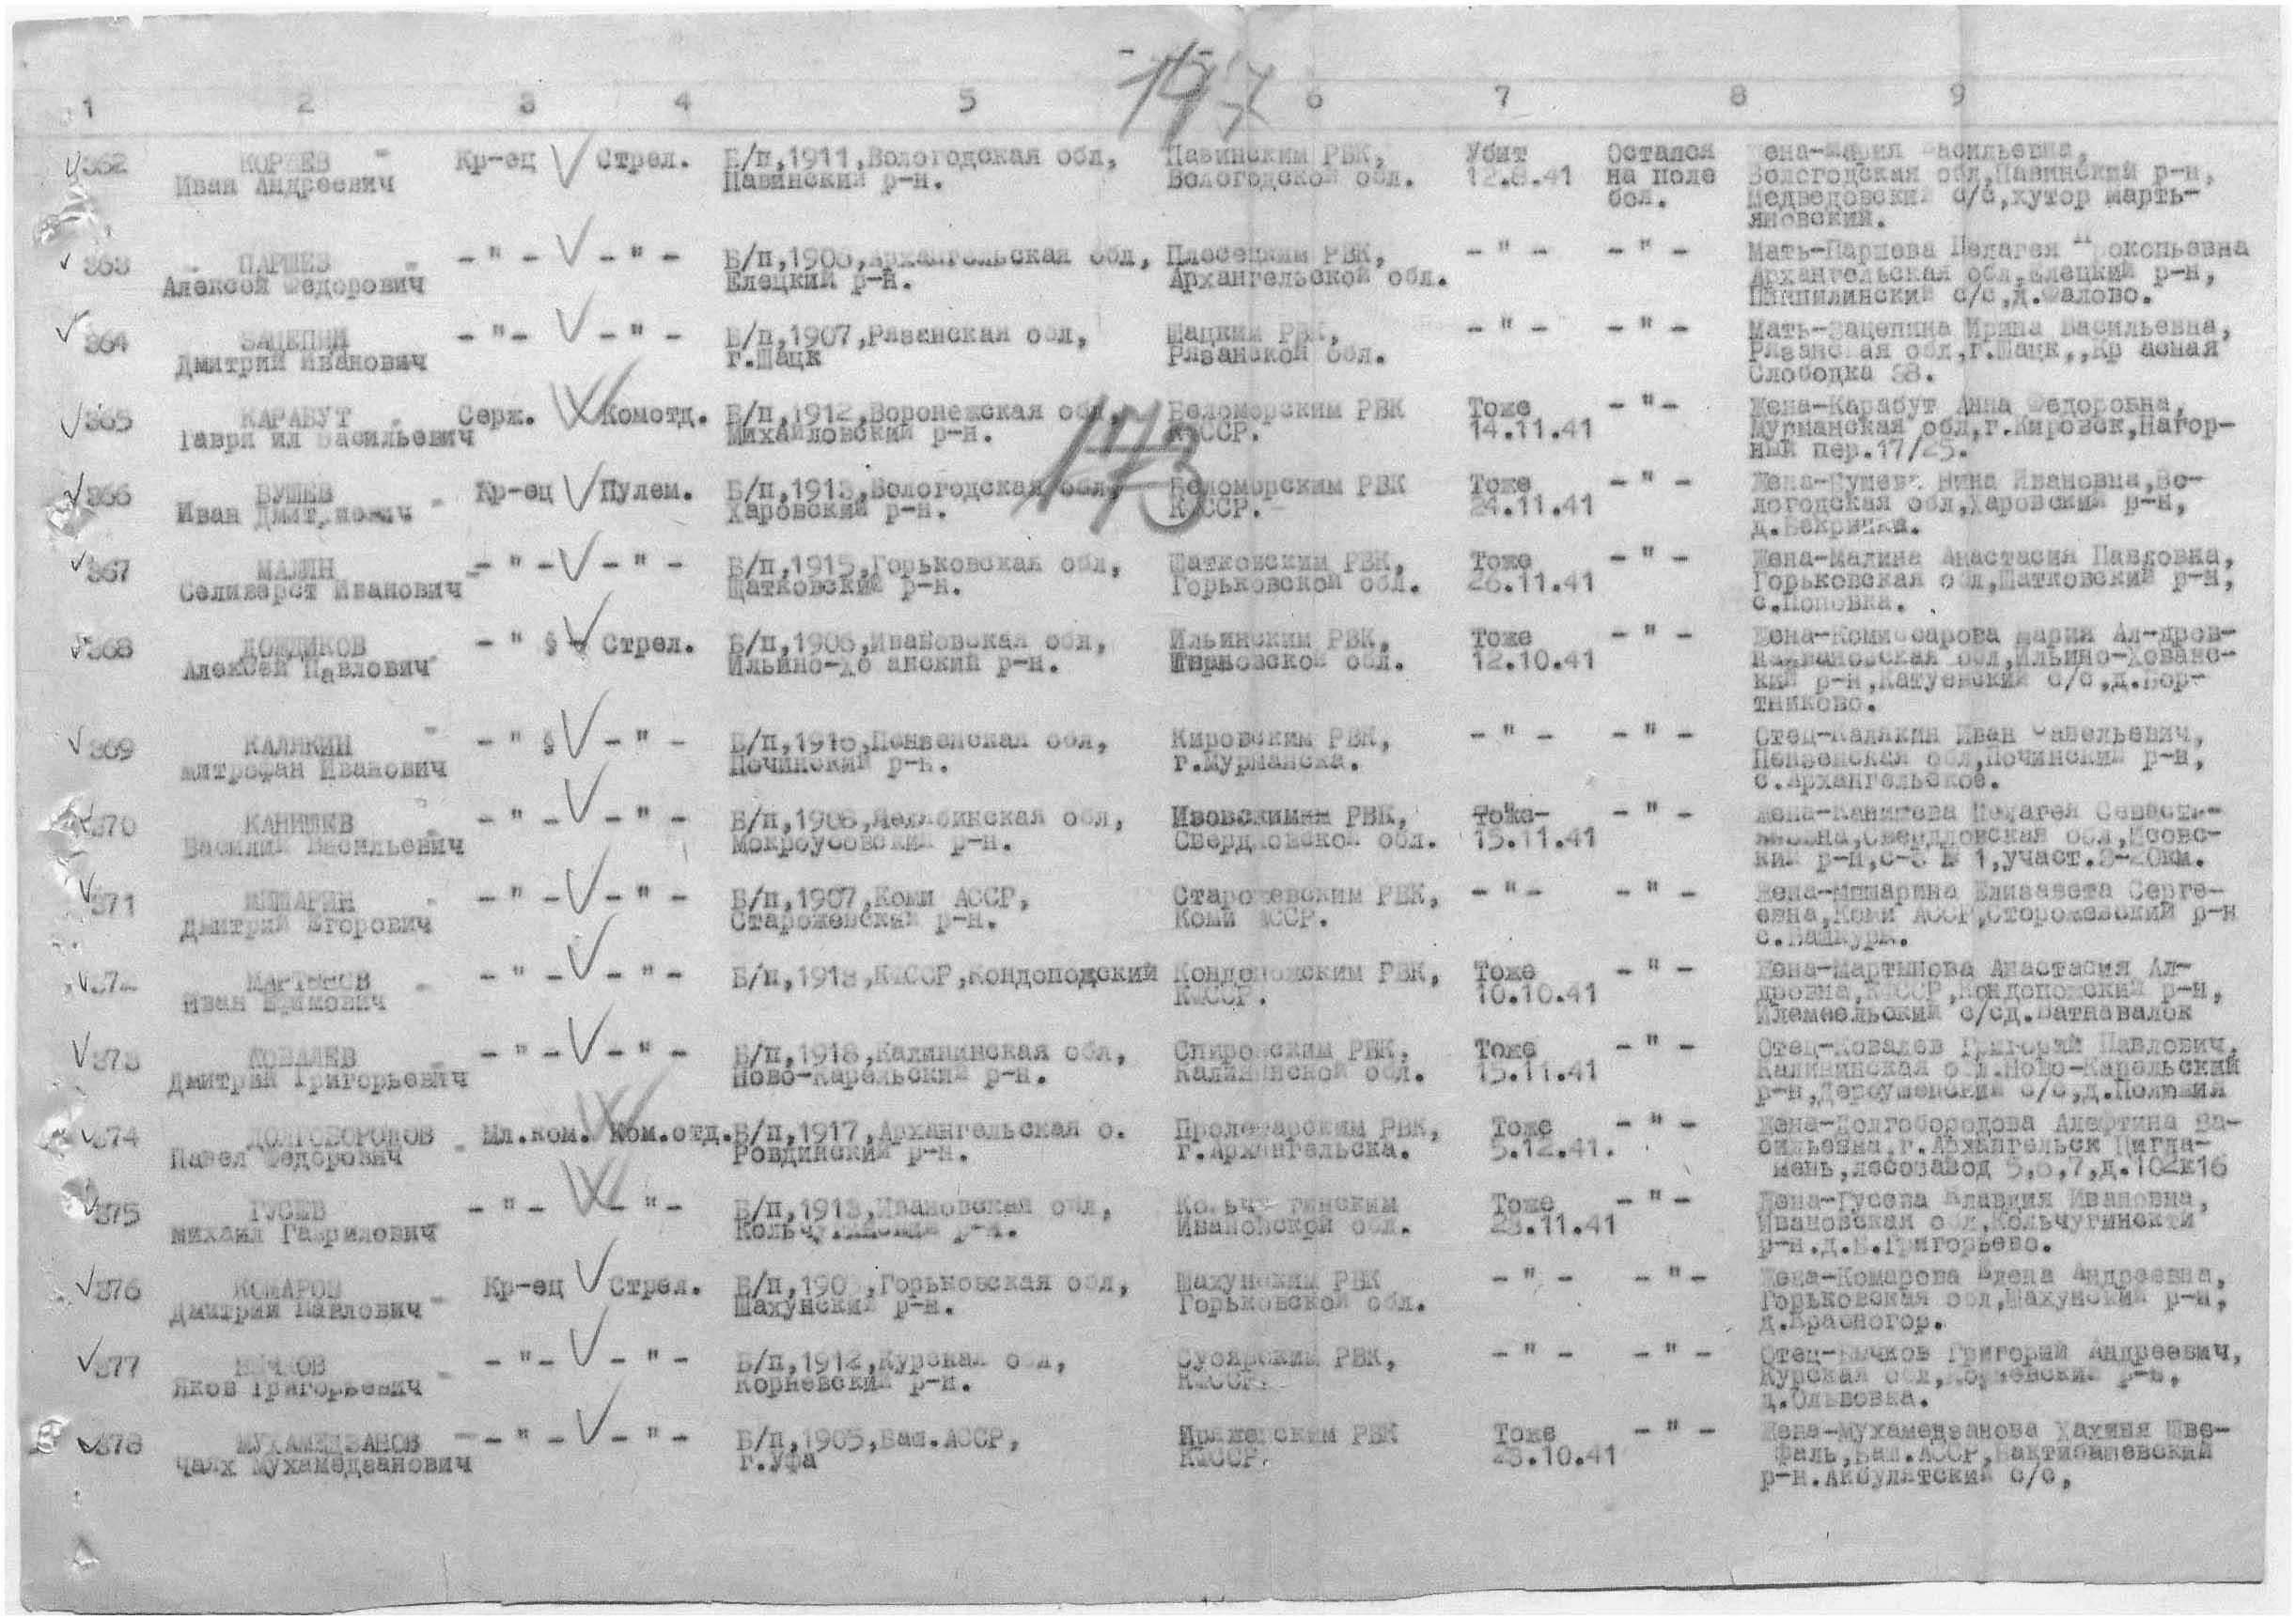 1 2 3 4 5 6 7 8 9
362 Кр-ец Стрел. Б/п,1911,Вологодская обл, Павинским РВК, Убит Остался Жена-Мария Васильевна,
Иван Андреевич Павинский р-н. Вологодской обл. 12.8.41 на поле Вологодская обл,Павинский р-н,
боя. Медведовский с/с,хутор Марть-
яновский.
363 ПАРШЕВ -"- -"- Б/п,1906,Архангельская обл, Плесецким РВК, -"- -"- Мать-Паршева Пелагея Прокопьевна
Алексей Федорович Елецкий р-н. Архангельской обл. Архангельская обл,Елецкий р-н,
с/с,д.Фалово.
364 ЗАЦЕПИН -"- -"- Б/п,1907,Рязанская обл, Шацким РВК, -"- -"- Мать-Зацепина Ирина Васильевна,
Дмитрий Иванович г.Шацк Рязанской обл. Рязанская обл,г.Шацк,,Кр асная
Слободка 38.
173
365 КАРАБУТ Серж. Комотд. Б/п,1912,Воронежская обл, Беломорским РВК Тоже -"- Жена-Карабут Анна Федоровна,
Гаври ил Васильевич Михайловский р-н. КФССР. 14.11.41 Мурманская обл,г.Кировск,Нагор-
ный пер.17/25.
366 Кр-ец Пулем. Б/п,1913,Вологодская обл, Беломорским РВК Тоже -"- Нина Ивановна,Во-
Иван Дмитриевич Харовский р-н. КФССР. 24.11.41 логодская обл,Харовский р-н,
367 МАЛИН -"- -"- Б/п,1915,Горьковская обл, Шатковским РВК, Тоже -"- Жена-Малина Анастасия Павловна,
Селиверст Иванович Шатковский р-н. Горьковской обл. 26.11.41 Горьковская обл,Шатковский р-н,
с.Поповка.
368 ДОЖДИКОВ -" § - Стрел. Б/п,1906,Ивановская обл, Ильинским РВК, Тоже -"- Жена-Комиссарова Мария Ал-дров-
Алексей Павлович Ильино-Хо анский р-н. обл. 12.10.41 на,Ивановская обл,Ильино-Хованс-
кий р-н,Катуенский с/с,д.Бор-
тниково.
369 КАЛЯКИН -" § -"- Б/п,1916,Пензенская обл, Кировским РВК, -"- -"- Отец-Калякин Иван Савельевич,
Митрофан Иванович Починский р-н. г.Мурманска. Пензенская обл,Починский р-н,
с.Архангельское.
370 КАНИШЕВ -"- -"- Б/п,1908,Челябинская обл, РВК, Тоже- -"- Жена-Канишева Пелагея
Василий Васильевич Мокроусовский р-н. Свердловской обл. 15.11.41 Свердловская обл,Исовс-
кий р-н, № 1,участ.
371 МИШАРИН -"- -"- Б/п,1907,Коми АССР, Старожевским РВК, -"- -"- Жена-Мишарина Елизавета Серге-
Дмитрий Егорович Старожевский р-н. Коми АССР. евна,Коми АССР,Сторожевский р-н
372 МАРТЫНОВ -"- -"- Б/п,1918,КФССР,Кондоподский Кондопожским РВК, Тоже -"- Жена-Мартынова Анастасия Ал-
Иван Ефимович КФССР. 10.10.41 дровна,КФССР,Кондопожский р-н,
с/сд.Ватнаволок
373 КОВАЛЕВ -"- -"- Б/п,1918,Калининская обл, Спировским РВК, Тоже -"- Отец-Ковалев Григорий Павлович,
Дмитрий Григорьевич Ново-Карельский р-н. Калининской обл. 15.11.41 Калининская обл.Ново-Карельский
р-н, с/с,д.
374 ДОЛГОБОРОДОВ Мл.ком. Ком.отд. Б/п,1917,Архангельская о. Пролетарским РВК, Тоже -"- Жена-Долгобородова Алефтина Ва-
Павел Федорович Ровдинский р-н. г.Архангельска. 5.12.41. сильевна,г.Архангельск Цигла-
мень,лесозавод 5,6,7,д.102к16
375 ГУСЕВ -"- -"- Б/п,1913,Ивановская обл, Кольчугинским Тоже -"- Жена-Гусева Клавдия Ивановна,
Михаил Гаврилович Кольчугинский р-н. Ивановской обл. 23.11.41 Ивановская обл,Кольчугинский
р-н.д.Б.Григорьево.
376 КОМАРОВ Кр-ец Стрел. Горьковская обл, Шахунским РВК -"- -"- Жена-Комарова Елена Андреевна,
Дмитрий Павлович Шахунский р-н. Горьковской обл. Горьковская обл,Шахунский р-н,
д.Красногор.
377 БЫЧКОВ -"- -"- Б/п,1912,Курская обл, РВК, -"- -"- Отец-Бычков Григорий Андреевич,
Яков Григорьевич Корневский р-н. КФССР. Курская обл,Корневский р-н,
д.Ольвовка.
378 МУХАМЕДЗАНОВ -"- -"- Б/п,1905,Баш.АССР, РВК Тоже -"- Жена-Мухамедзанова Хахиня Шве-
Мухамедзанович г.Уфа КФССР. 23.10.41 фаль,Баш.АССР,Бактибашевский
р-н.Айбулятский с/с,